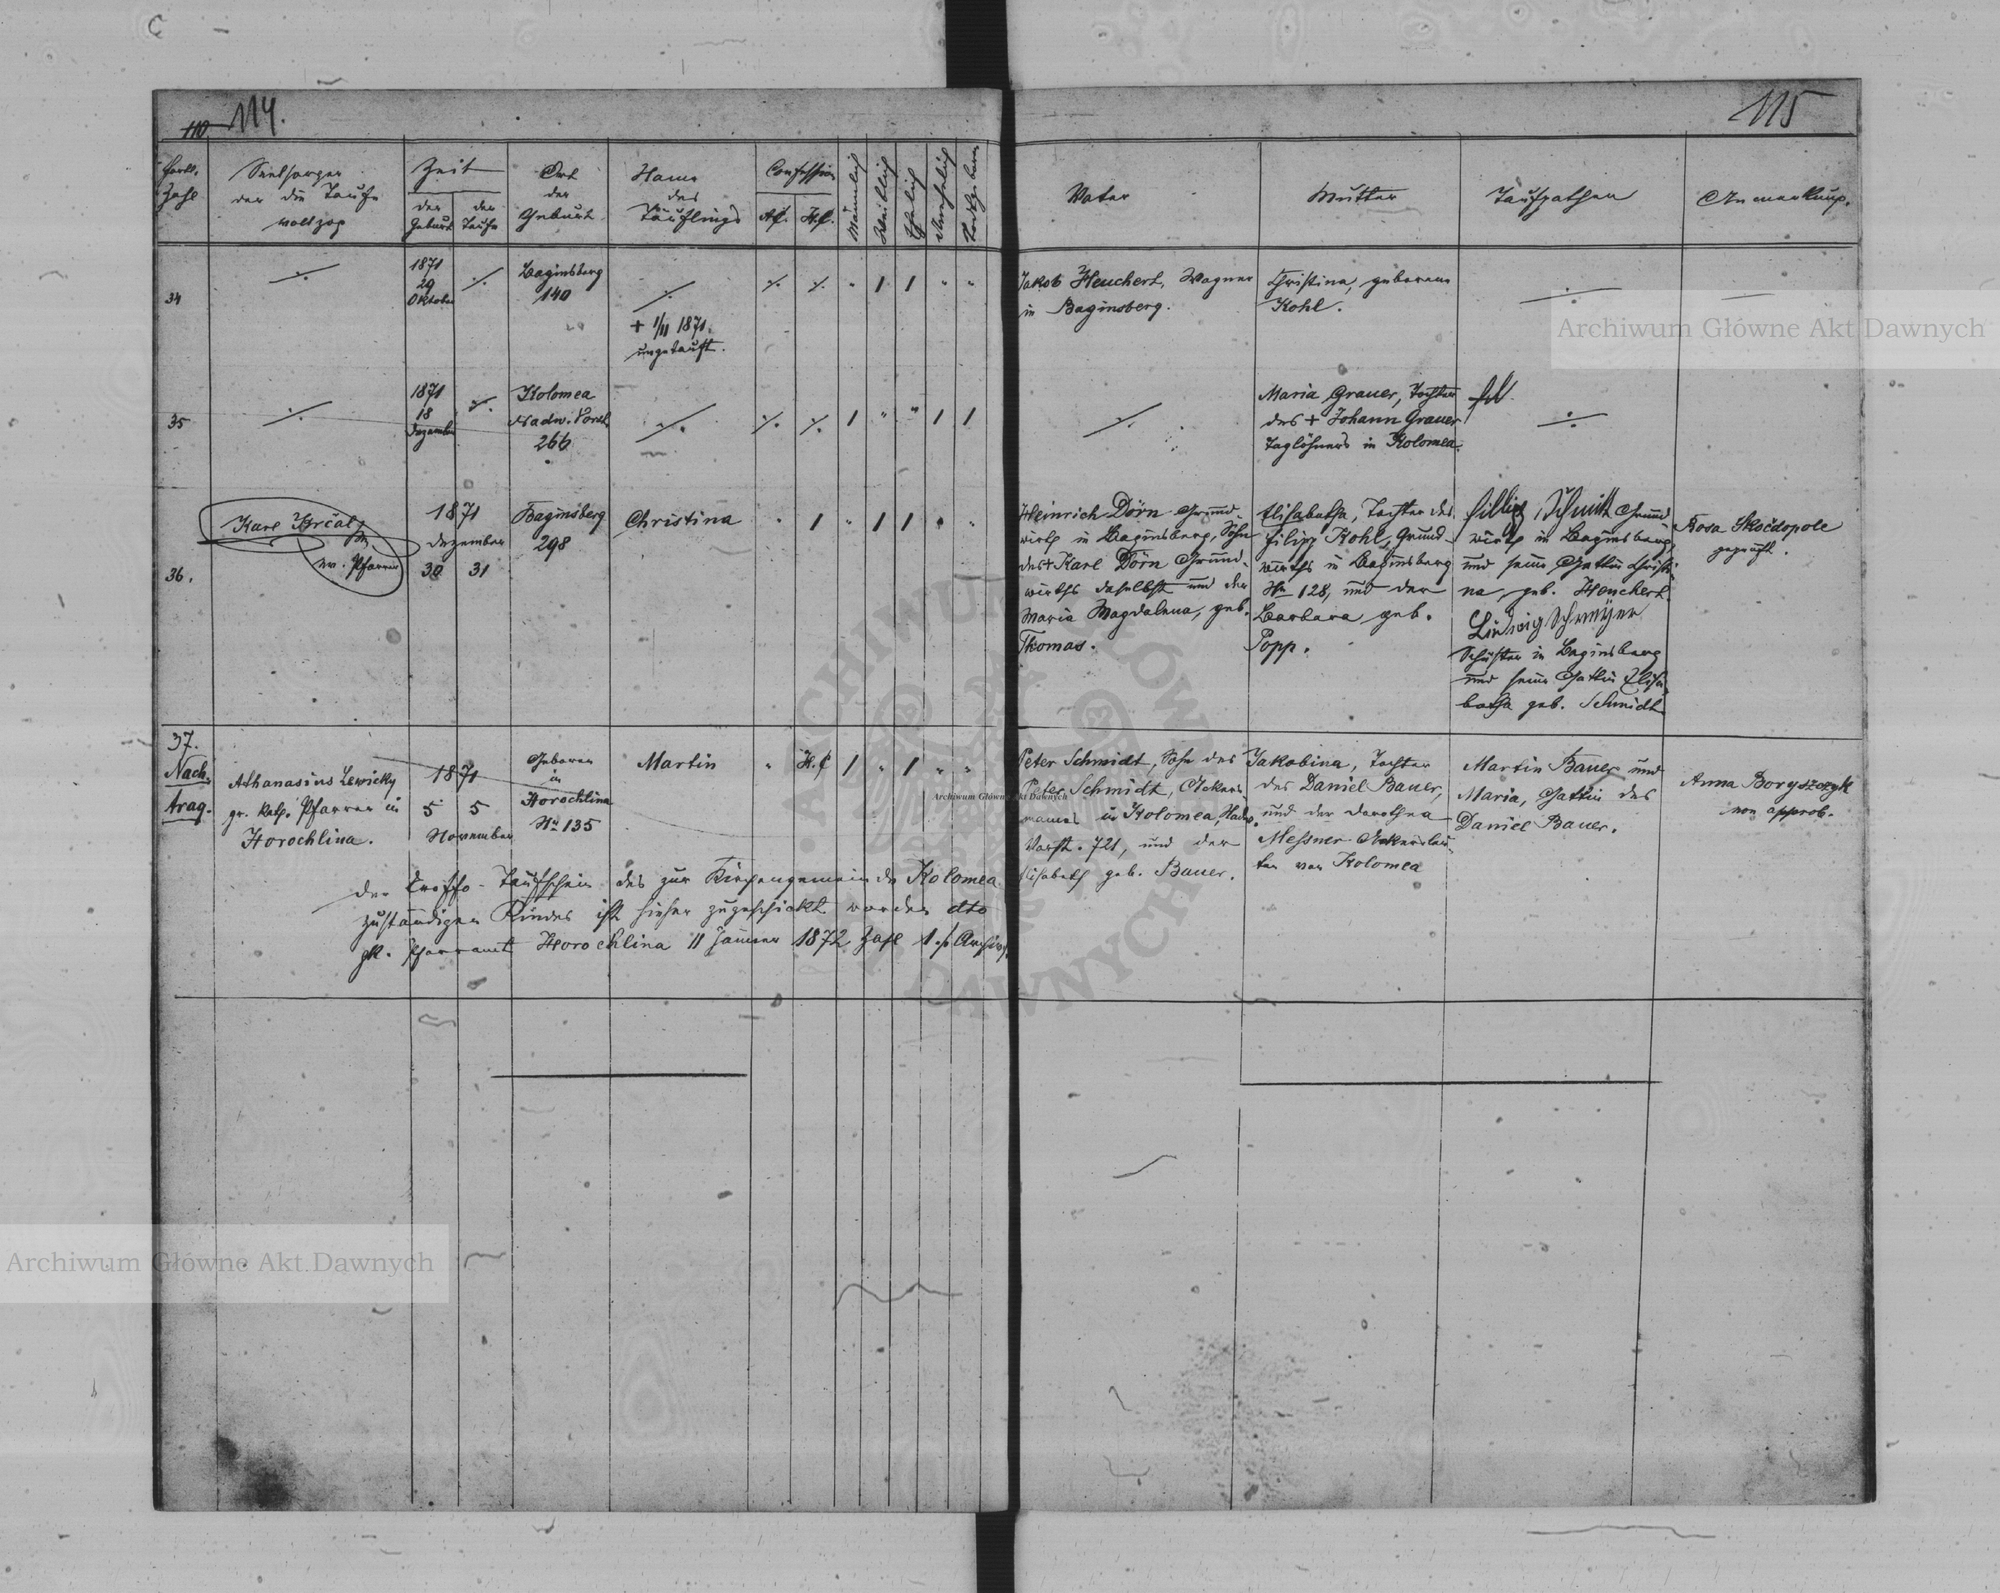 110. 114.
115
Fortl. Zahl
Seelsorger der die Taufe vollzog
Zeit
der Geburt
der Taufe
Ort der Geburt
Name des Täuflings
Confession
A.C.
H.C.
Männlich
Weiblich
Ehelich
Unehelich
Todtgeboren
Vater
Mutter
Taufpathen
Anmerkung.
34
1871
29
Oktober
Baginsberg
140
+ 1/11 1871
ungetauft.
Jakob Heuchert, Wagner
in Baginsberg.
Christina, geborene
Kohl.
35
1871
18
Dezember
Kolomea
Nadw. Vorst.
266
Maria Grauer, Tochter
des + Johann Grauer
Taglöhners in Kolomea.
36.
Karl
ev. Pfarrer
1871
Dezember
30 31
Baginsberg
298
Christina
Heinrich Dörn Grund-
wirth in Baginsberg, Sohn
des + Karl Dörn Grund-
wirths daselbst und der
Maria Magdalena, geb.
Thomas.
Elisabetha, Tochter des
Filipp Kohl, Grund-
wirths in Baginsberg
Nr 128, und der
Barbara geb.
Popp.
Filipp Schmidt Grund-
wirth in Baginsberg
und seine Gattin Christi-
na, geb. Heuchert.
Ludwig Schweyer
Schuster in Baginsberg
und seine Gattin Elisa-
betha geb. Schmidt
Rosa Skočdopole
geprüft.
37.
Nach-
trag.
Athanasius Lewicky
gr. kath. Pfarrer in
Horochlina.
1871
5 5
November
Geboren
in
Horochlina
Nr 135
Martin
H.C
Peter Schmidt, Sohn des
Peter Schmidt, Ackers-
mannes in Kolomea, Nadw.
Vorst. 721, und der
Elisabeth geb. Bauer.
Jakobina, Tochter
des Daniel Bauer,
und der Dorothea
Messner Ackersleu-
ten von Kolomea
Martin Bauer und
Maria, Gattin des
Daniel Bauer.
Anna Boryszczyk
non approb.
Der Taufschein des zur Kirchengemeinde Kolomea
zuständigen Kindes ist hieher zugeschickt worden dto
gk. Pfarramt Horochlina 11 Jänner 1872 Zahl 1
Archiwum Główne Akt Dawnych
Archiwum Główne Akt Dawnych
Archiwum Główne Akt Dawnych